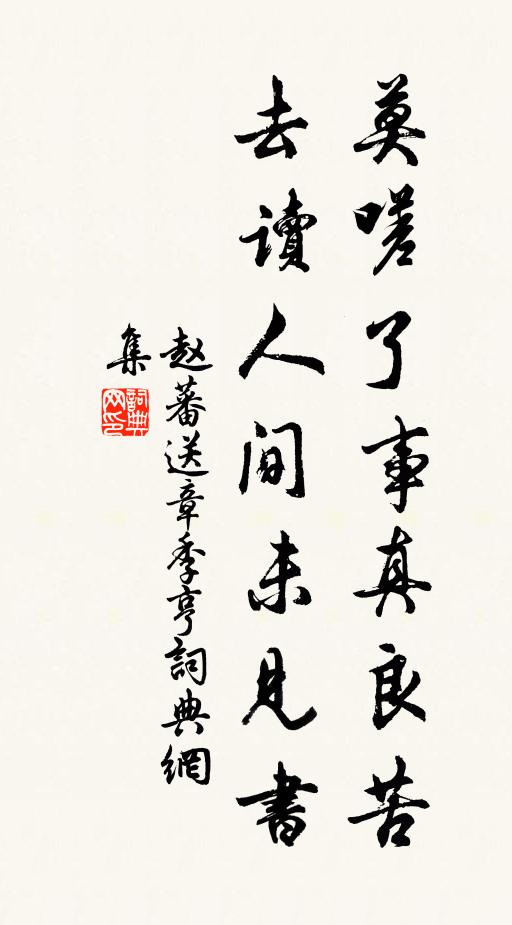 莫嗟了事真良苦
去讀人间未見書
赵蕃送章季亨詞典網
集
詞典
网印